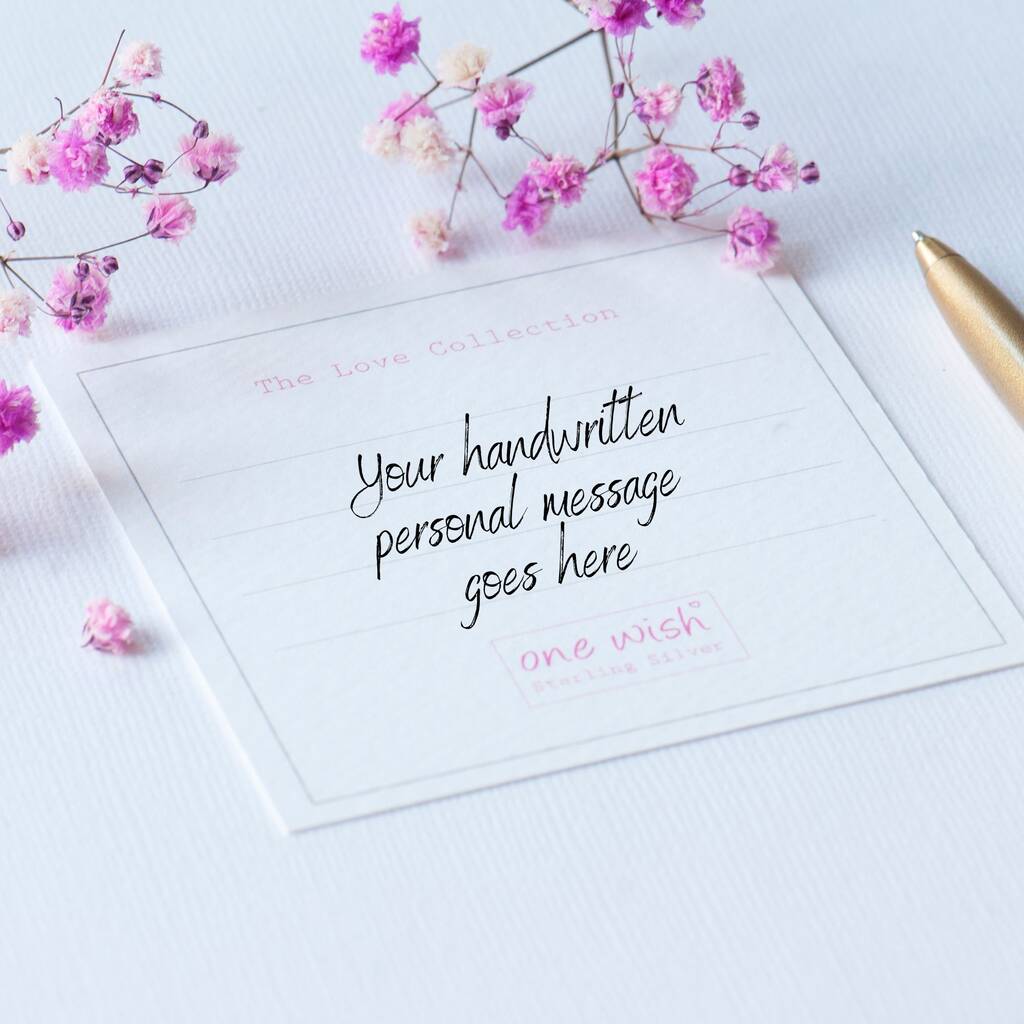 The Love Collection
Your handwritten
personal message
goes here
one wish
Sterling Silver